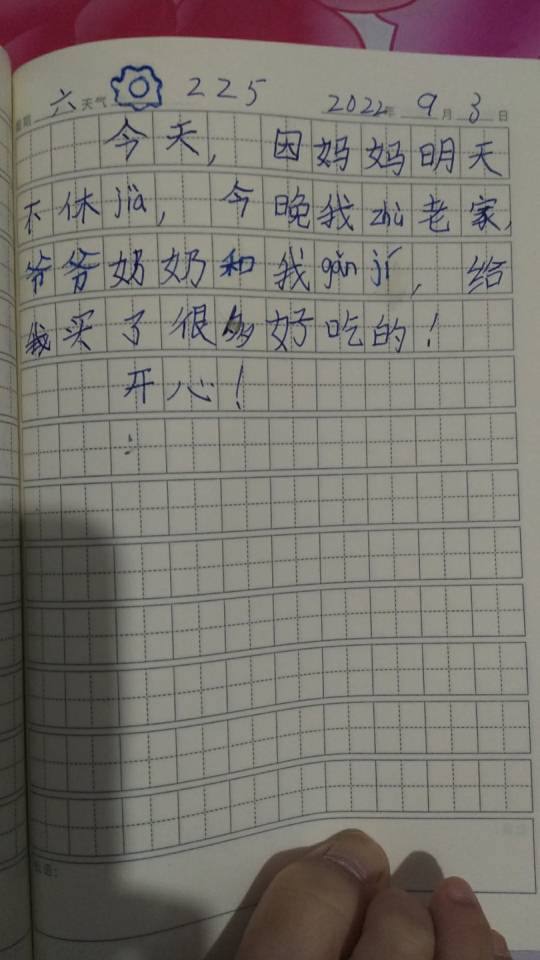 星期 六 天气 225 2022年 9月 3日
今天，因妈妈明天
不休jià，今晚我zhù老家，
爷爷奶奶和我gǎn jí，给
我买了很多好吃的！
开心！